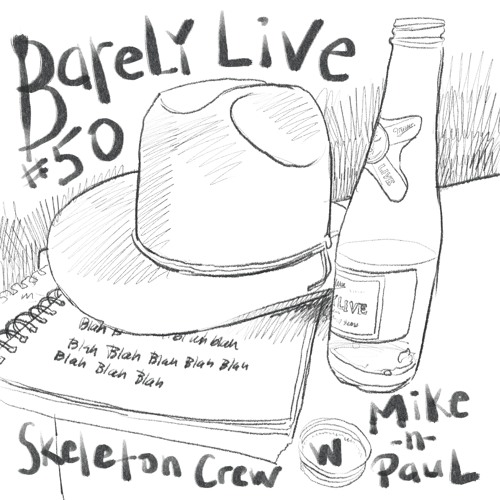 Barely Live
#50
LIVE
LIVE
Blah Blah
Blah Blah Blah Blah Blah
Blah Blah Blah
Skeleton Crew
W
Mike
-n-
Paul